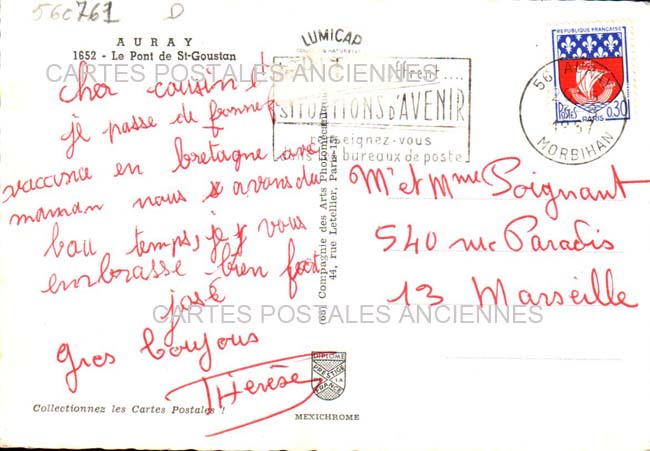 56c761 D
AURAY
1652 - Le Pont de St-Goustan
CARTES POSTALES ANCIENNES
cher cousin
je passe de bonnes
vaccance en bretagne avec
maman nous avons du
bau temps, je vous
embrasse bien fort
josé
gros boujous
Thérèse
Collectionnez les Cartes Postales !
LUMICAP
offrent....
SITUATIONS D'AVENIR
bureaux de poste
(68) Compagnie des Arts Photomécaniques
44, rue Letellier, Paris-15
DIPLOME
PRESTIGE
DE LA
FRANCE
MEXICHROME
REPUBLIQUE FRANÇAISE
POSTES
0,30
PARIS
56 AURAY
MORBIHAN
Mr et Mme Poignant
540 rue Paradis
13 Marseille
CARTES POSTALES ANCIENNES